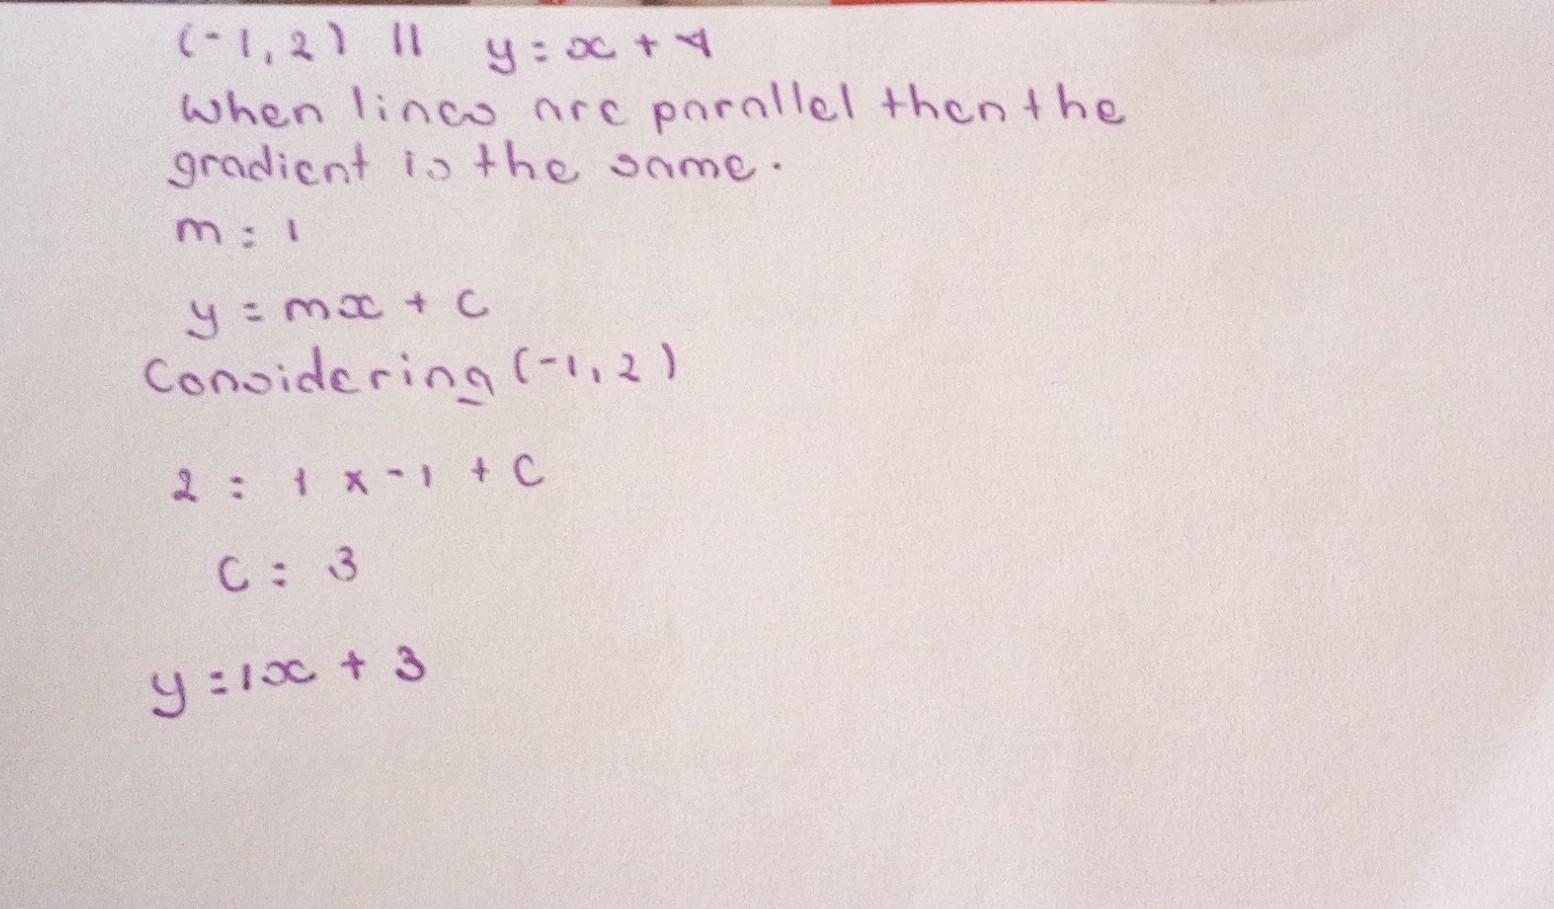 (-1, 2) || y = x + 4
When lines are parallel then the
gradient is the same.
m = 1
y = mx + c
Considering (-1, 2)
2 = 1 x -1 + C
C = 3
y = 1x + 3